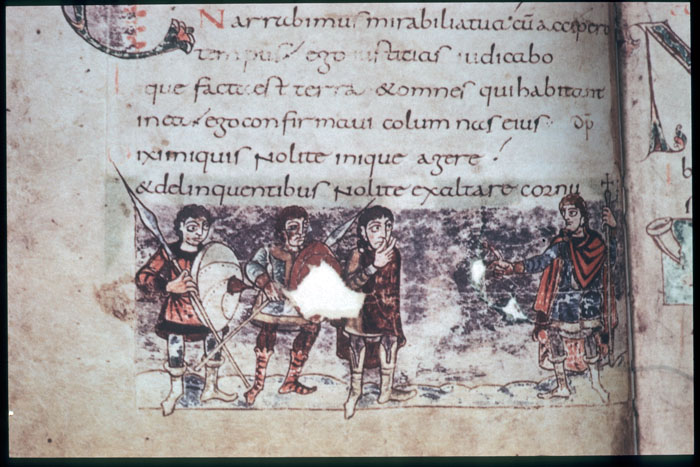 Narrabimus mirabilia tua: cu accipero
tempus. ego iusticias iudicabo
que facta est terra & omnes qui habitant
in ea. ego confirmavi columnas eius. dp
ixi iniquis Nolite inique agere.
& delinquentibus Nolite exaltare cornu